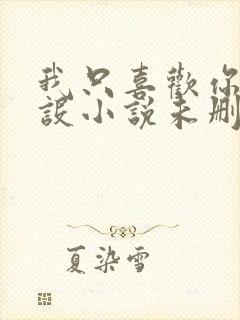 我只喜歡你
設小說未刪
夏染雪